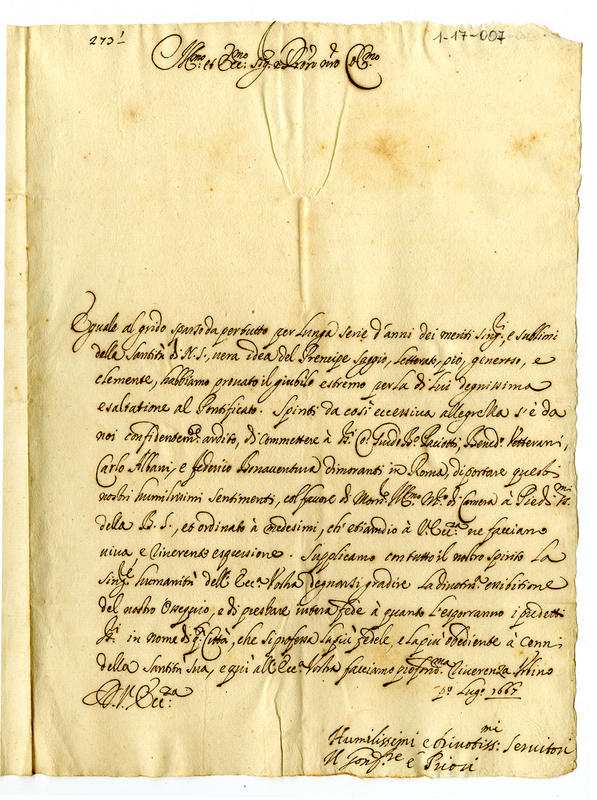 273
1-17-007
Ill:mo et Ecc:mo Sig:r e Pron nro Col:mo
Eguale al grido sparso da per tutto per lunga serie d'anni dei meriti sing:ri e sublimi
della Santità di N. S., vera idea del Prencipe saggio, letterato, pio, generoso, e
clemente, habbiamo prouato il giubilo estremo per la di lui degnissima
esaltatione al Pontificato. Spinti da così eccessiua allegrezza s'è da
noi confidentem:te ardito, di commettere à Co: Guido Paciotti, Bened:o Vetterani,
Carlo Albani, e Federico Bonauentura dimoranti in Roma, di portare questi
nostri humilissimi sentimenti, col fauore di Mons:r Ill:mo M:ro di Camera à Pied:
della B. S., et ordinato à medesimi, ch'etiandio à V. Ecc:za ne facciano
viua e riuerente espressione. Supplicamo con tutto il nostro spirito la
Sing:re humanità dell'Ecc:a Vostra degnarsi, gradire la diuotiss:a esibitione
del nostro Ossequio, e di prestare intera fede à quanto l'esporranno i predetti
in nome di q:a Città, che si professa la più fedele, e la più obediente à Cenni
della Santità Sua, e qui all'Ecc:a Vostra facciamo profond:ma riuerenza. Urbino
p:o Lug:o 1667
D. V. Ecc:za
Humilissimi e diuotiss:mi Seruitori
Il Gonf:re e Priori